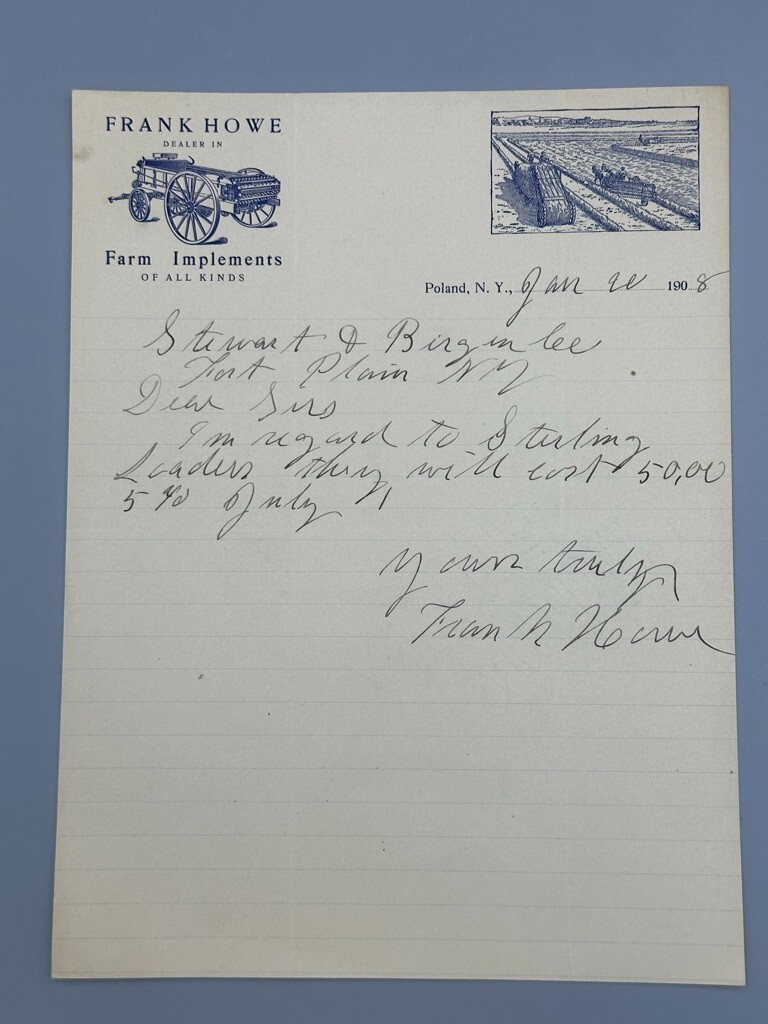 FRANK HOWE
DEALER IN
Farm Implements
OF ALL KINDS
Poland, N. Y., Jan 1908
Stewart &
Fort Plain NY
Dear Sirs
In regard to Sterling
Loaders they will cost 50,00
5% July 1
Yours truly
Frank Howe